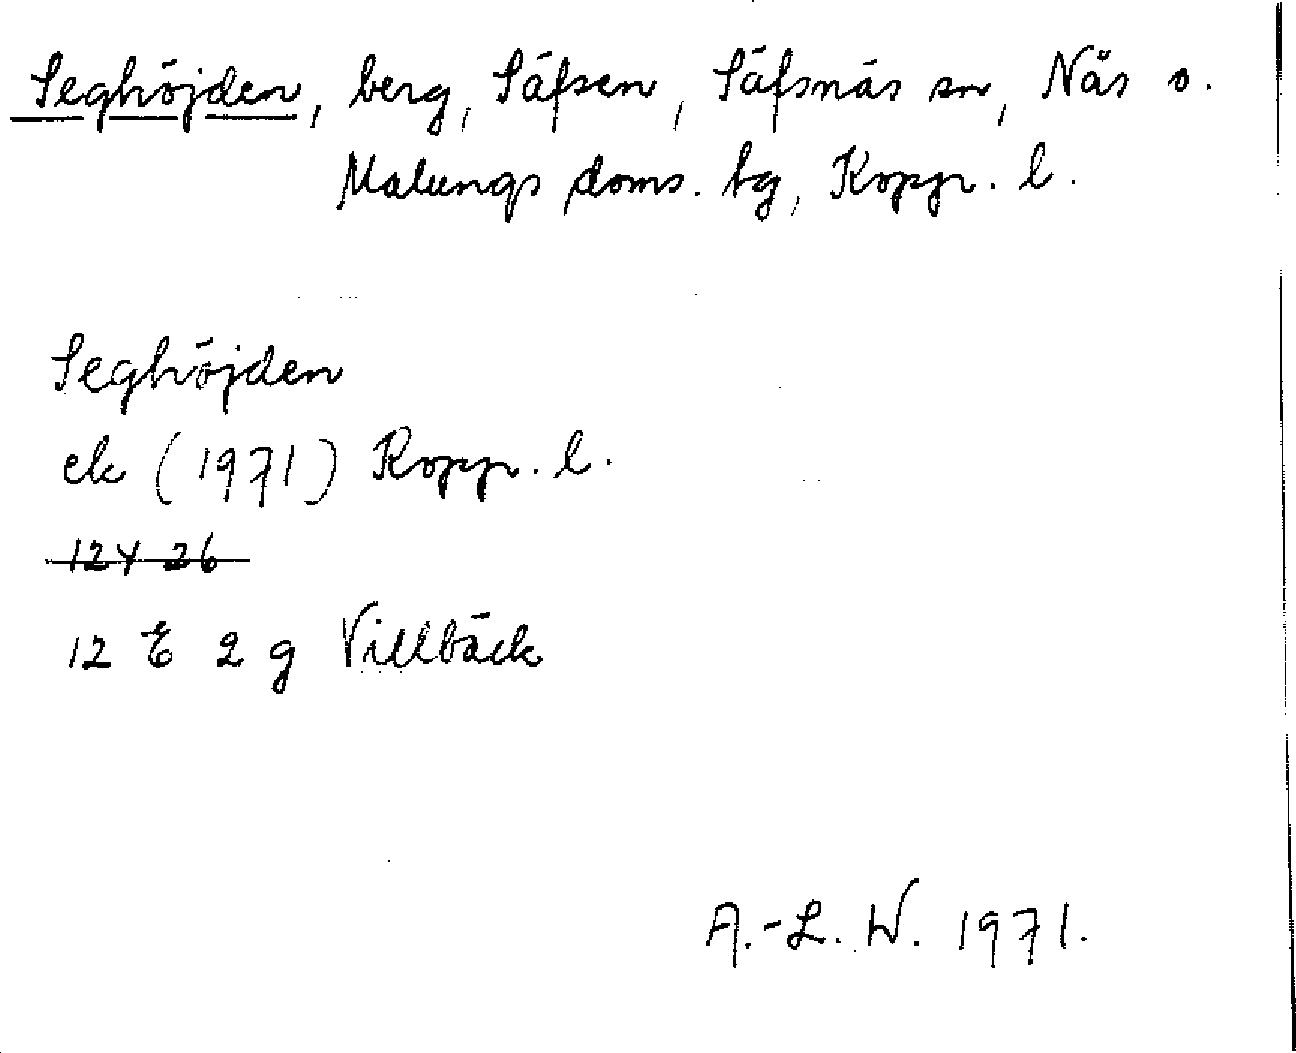 Seghöjden, berg, Säfsen, Säfsnäs sn, Nås o.
Malungs doms. tg, Kopp. l.
Seghöjden
ek (1971) Kopp. l.
12Y 26
12 E 2 g Villbäck
A.-L. W. 1971.